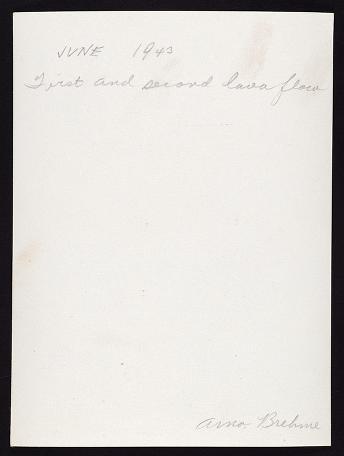 JUNE 1943
First and second lava flow
Arno. Brehme